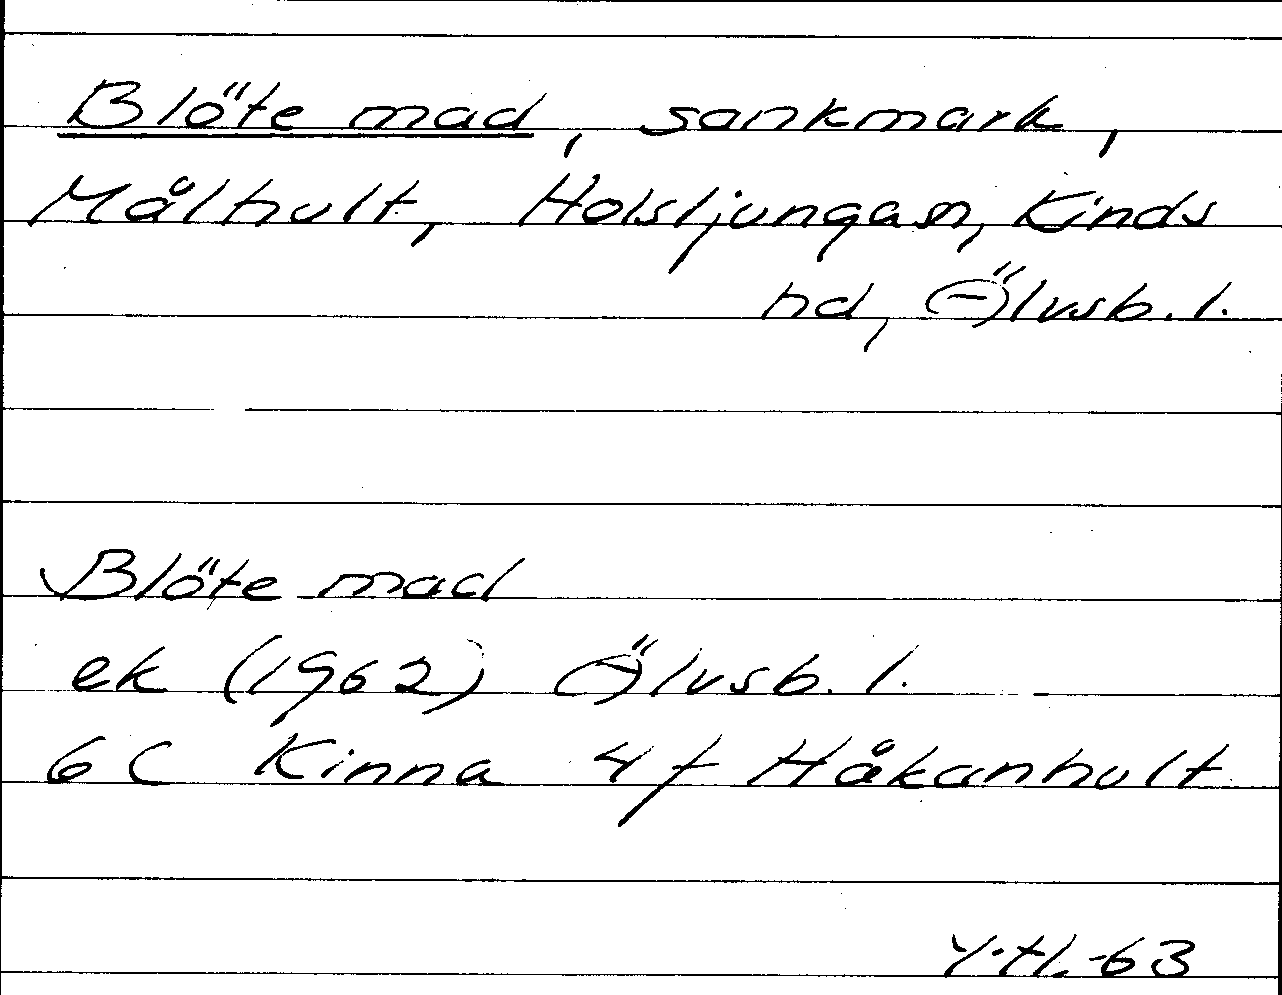 Blöte mad, sankmark,
Målhult, Holsljunga sn, Kinds
hd, Älvsb. l.
Blöte mad
ek (1962) Älvsb. l.
6C Kinna 4f Håkanhult
Y.H.-63